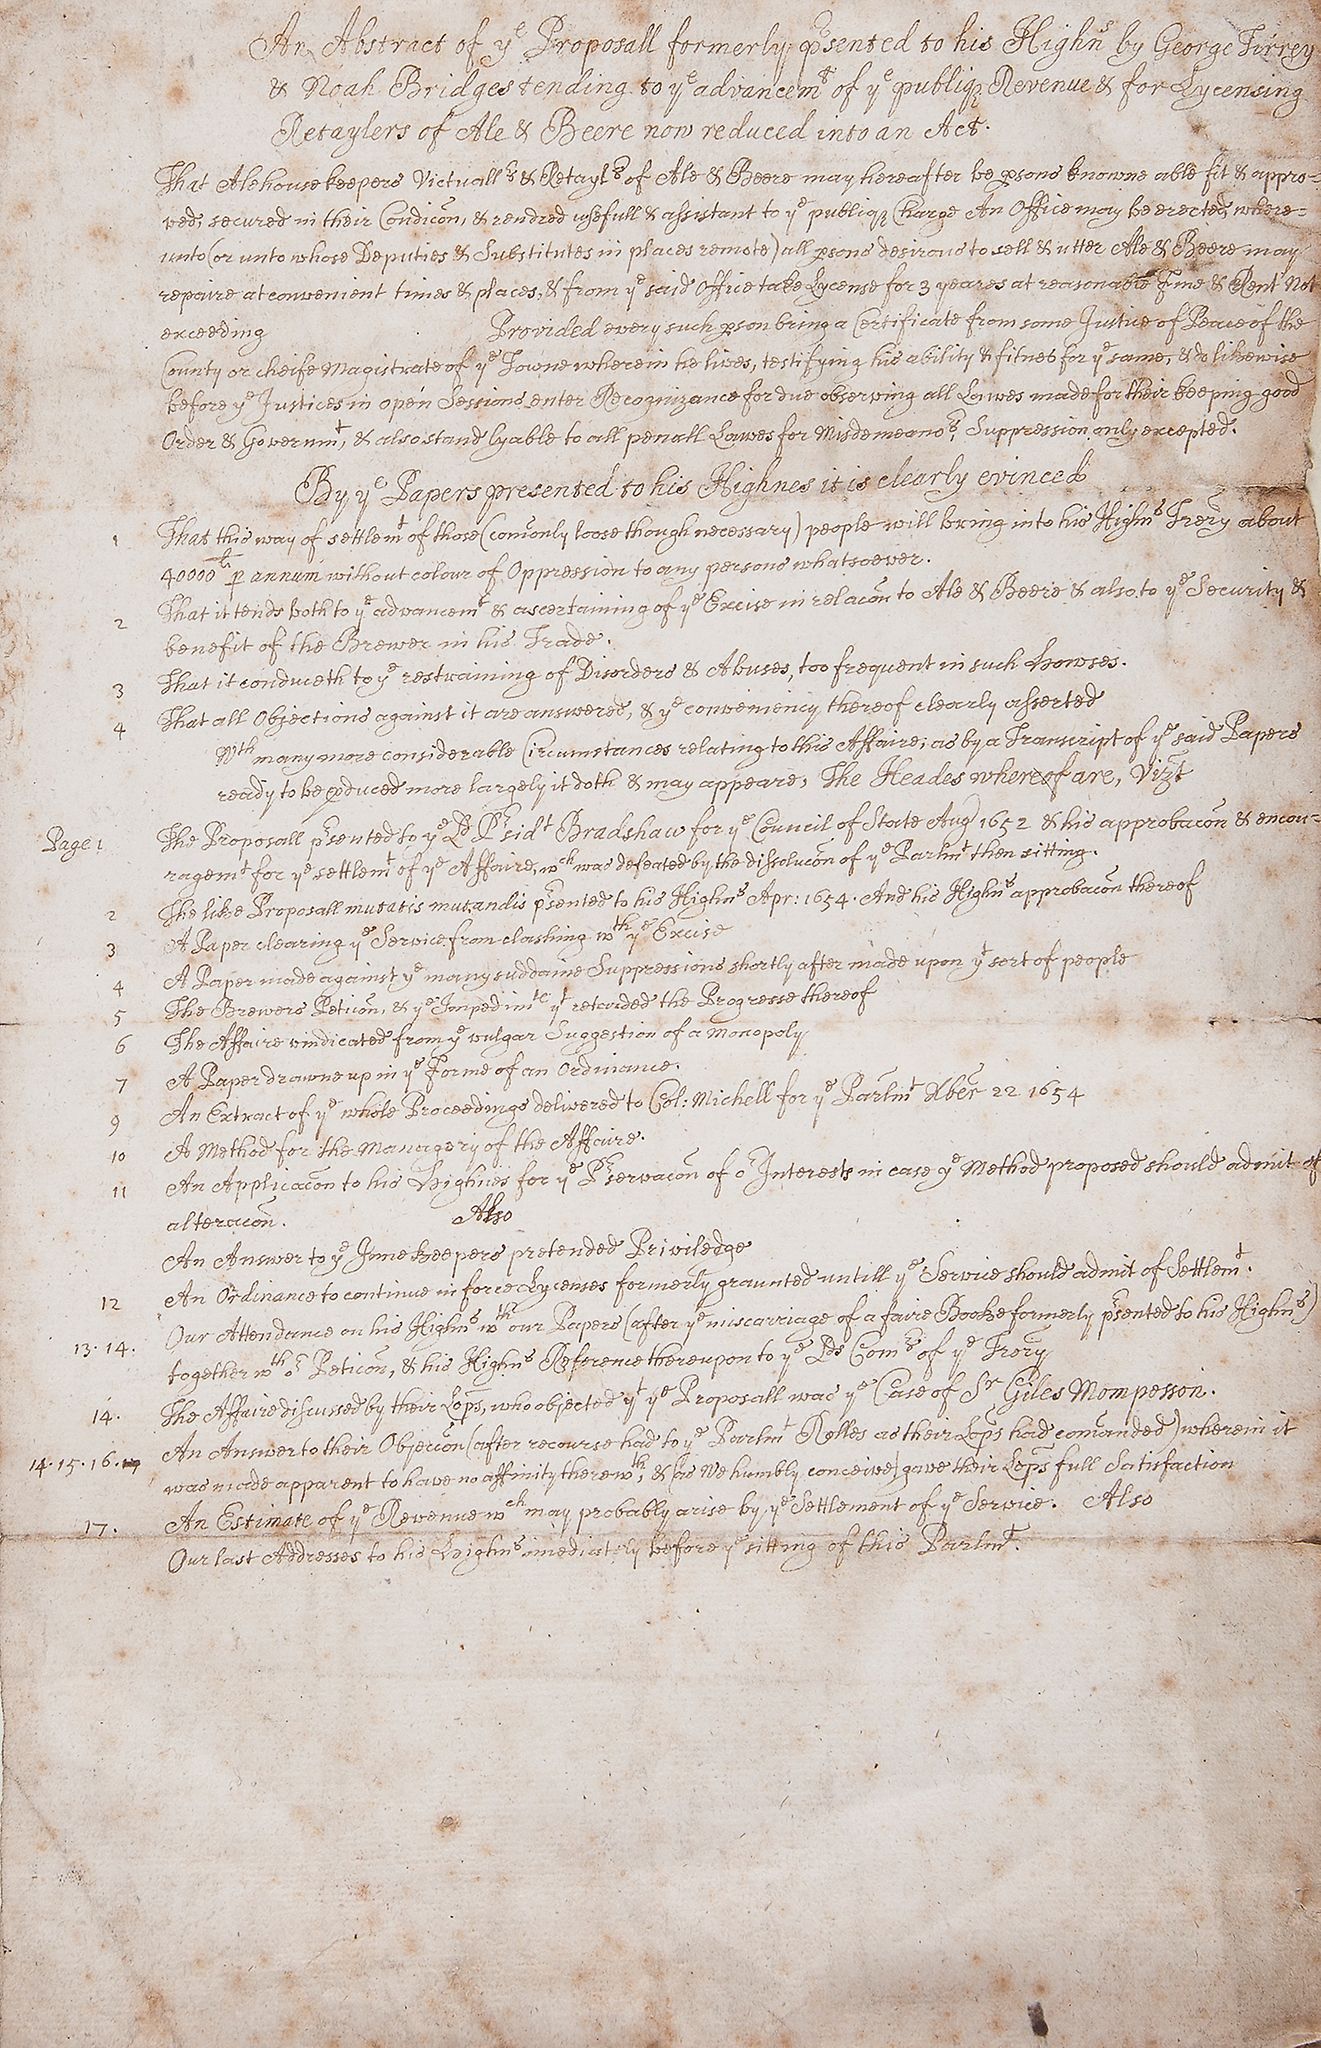 An Abstract of ye Proposall formerly psented to his Highns by George Tirrey
& Noah Bridges tending to ye advancemt of ye publiq Revenue & for Lycensing
Retaylers of Ale & Beere now reduced into an Act.
That Alehousekeepers Victuallrs & Retaylrs of Ale & Beere may hereafter be psons knowne able fit & appro=
ved, secured in their Condicon, & rendred usefull & assistant to ye publiq Charge An Office may be erected, where=
unto (or unto whose Deputies & Substitutes in places remote) all psons desirous to sell & utter Ale & Beere may
repaire at convenient times & places, & from ye said Office take Lycense for 3 yeares at reasonable Fine & Rent Not
exceeding Provided every such pson bring a Certificate from some Justice of Peace of the
County or cheife Magistrate of ye Towne wherein he lives, testifying his ability & fitnes for ye same, & do likewise
before ye Justices in open Sessions enter Recognizance for due observing all Lawes made for their keeping good
Order & Governmt, & also stand lyable to all penall Lawes for Misdemeanors, Suppression only excepted.
By ye Papers presented to his Highnes it is clearly evinced
1 That this way of settlemt of those (comonly loose though necessary) people will bring into his Highns Trery about
40000li p annum without colour of Oppression to any persons whatsoever.
2 That it tends both to ye advancemt & ascertaining of ye Excise in relacon to Ale & Beere & also to ye Security &
benefit of the Brewer in his Trade.
3 That it conduceth to ye restraining of Disorders & Abuses, too frequent in such Howses.
4 That all Objections against it are answered, & ye conveniency thereof clearly asserted
Wth many more considerable Circumstances relating to this Affaire, as by a Transcript of ye said Papers
ready to be pduced more largely it doth & may appeare, The Heades whereof are, Vizt
Page 1 The Proposall psented to ye Ld Psidt Bradshaw for ye Council of State Aug 1652 & his approbacon & encou=
ragemt for ye settlemt of ye Affaire, wch was defeated by the dissolucon of ye Parlmt then sitting.
2 The like Proposall mutatis mutandis psented to his Highns Apr: 1654. And his Highns approbacon thereof
3 A Paper clearing ye Service from clashing wth ye Excise
4 A Paper made against ye many suddaine Suppressions shortly after made upon yt sort of people
5 The Brewers Peticon, & ye Impedimte yt retarded the Progresse thereof
6 The Affaire vindicated from ye vulgar Suggestion of a Monopoly
7 A Paper drawne up in ye Forme of an Ordinance.
9 An Extract of ye whole Proceedings delivered to Col: Michell for ye Parlmt Xber 22 1654
10 A Method for the Managery of the Affaire.
11 An Applicacon to his Highnes for ye Pservacon of or Interests in case ye Method proposed should admit of
alteracon. Also
An Answer to ye Innekeepers pretended Priviledge
12 An Ordinance to continue in force Lycenses formerly graunted untill ye Service should admit of Settlemt.
13. 14. Our Attendance on his Highns wth our Papers (after ye miscarriage of a faire Booke formerly psented to his Highns)
together wth or Peticon, & his Highns Reference thereupon to ye Lds Comrs of ye Trery
14. The Affaire discussed by their Lops, who objected yt ye Proposall was ye Case of Sr Giles Mompesson.
14. 15. 16. An Answer to their Objecon (after recourse had to ye Parlmt Rolles as their Lops had comanded) wherein it
was made apparent to have no affinity therewth, & (as We humbly conceive) gave their Lops full Satisfaction
17. An Estimate of ye Revenue wch may probably arise by ye Settlement of ye Service. Also
Our last Addresses to his Highns imediately before ye sitting of this Parlmt.